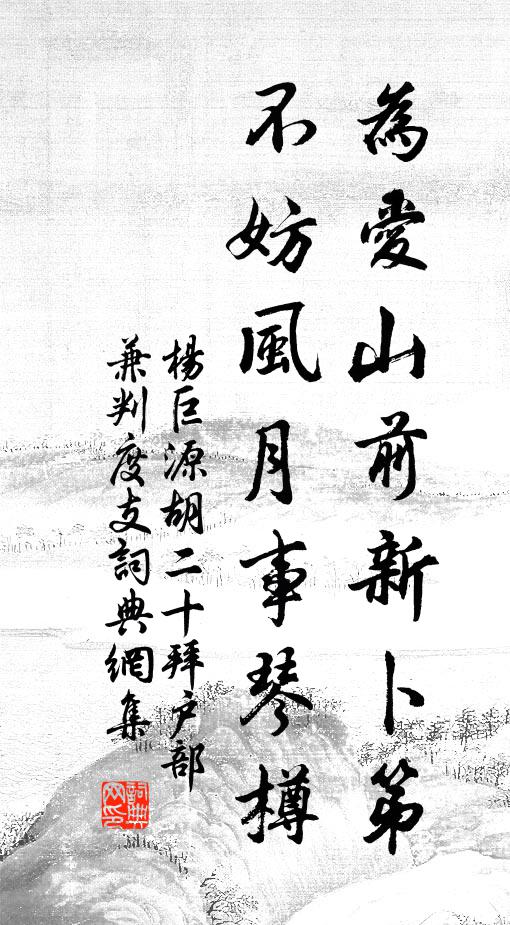 為愛山前新卜第
不妨風月事琴樽
楊巨源胡二十拜户部
兼判度支詞典網集
詞典网印